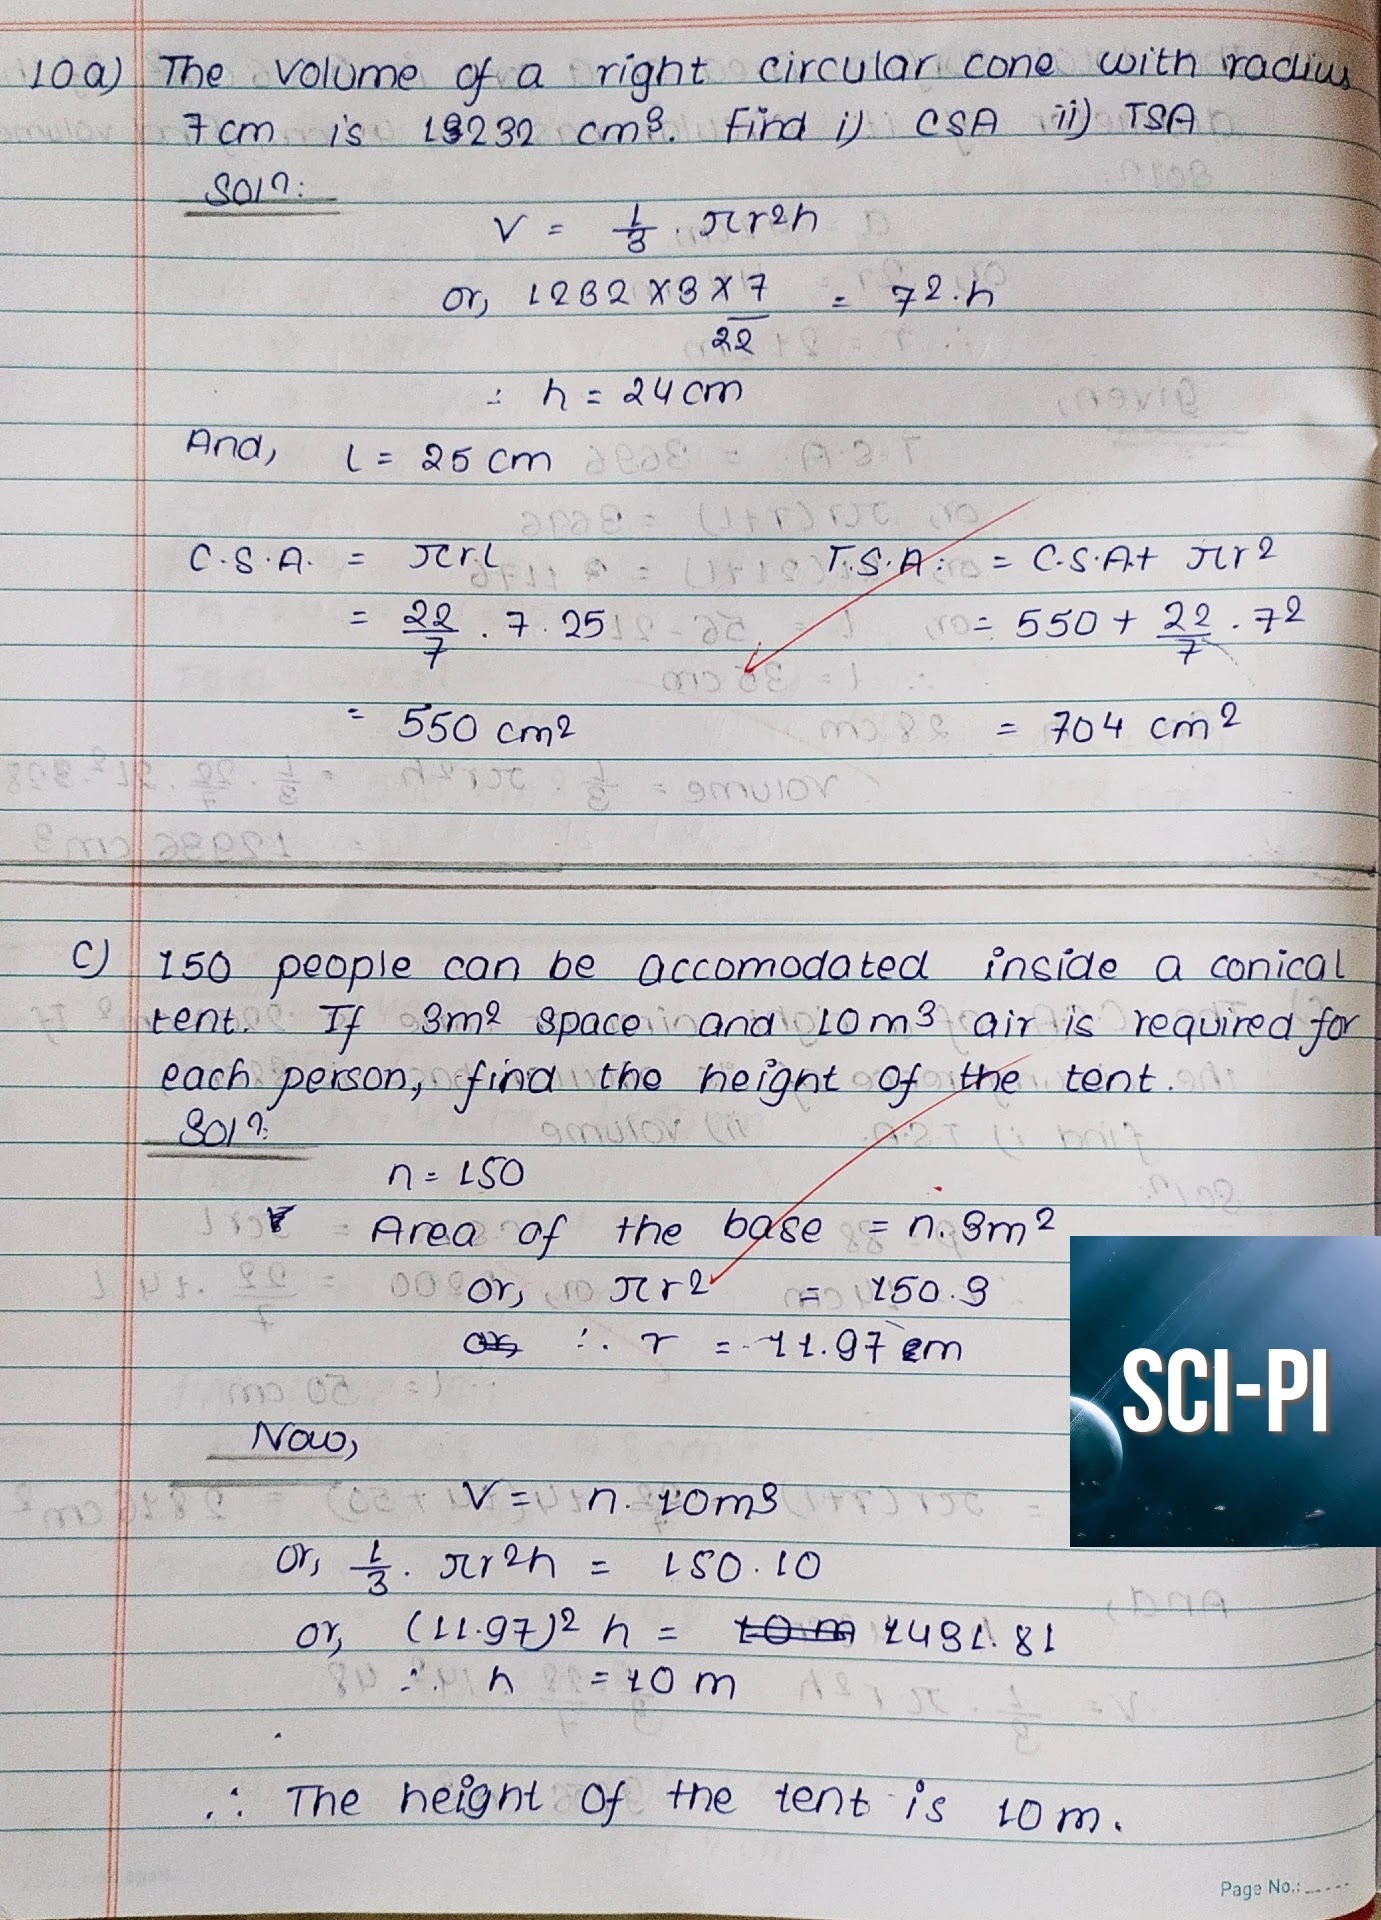 10a) The volume of a right circular cone with radius
7cm is 1232 cm3. Find i) CSA ii) TSA
Soln:
V = 1/3 . πr2h
or, 1232 X 3 X 7/22 = 72.h
∴ h = 24cm
And, l = 25 cm
C.S.A. = πrl
= 22/7 . 7 . 25
= 550 cm2
T.S.A. = C.S.A+ πr2
= 550 + 22/7 . 72
= 704 cm2
c) 150 people can be accomodated inside a conical
tent. If 3m2 space and 10m3 air is required for
each person, find the height of the tent.
Soln:
n = 150
Area of the base = n.3m2
or, πr2 = 150.3
∴ r = 11.97 cm
Now,
V = n. 10m3
or, 1/3 . πr2h = 150.10
or, (11.97)2 h = 1431.81
∴ h = 10 m
∴ The height of the tent is 10m.
SCI-PI
Page No.: